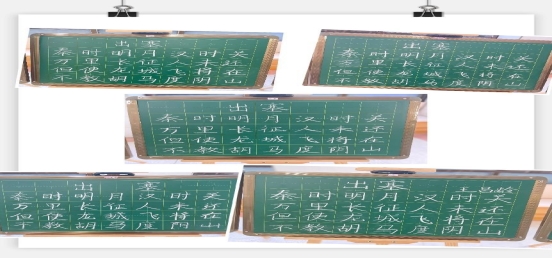 出塞
秦时明月汉时关
万里长征人未还
但使龙城飞将在
不教胡马度阴山
出塞
秦时明月汉时关
万里长征人未还
但使龙城飞将在
不教胡马度阴山
出塞
秦时明月汉时关
万里长征人未还
但使龙城飞将在
不教胡马度阴山
出塞
秦时明月汉时关
万里长征人未还
但使龙城飞将在
不教胡马度阴山
出塞
王昌龄
秦时明月汉时关
万里长征人未还
但使龙城飞将在
不教胡马度阴山